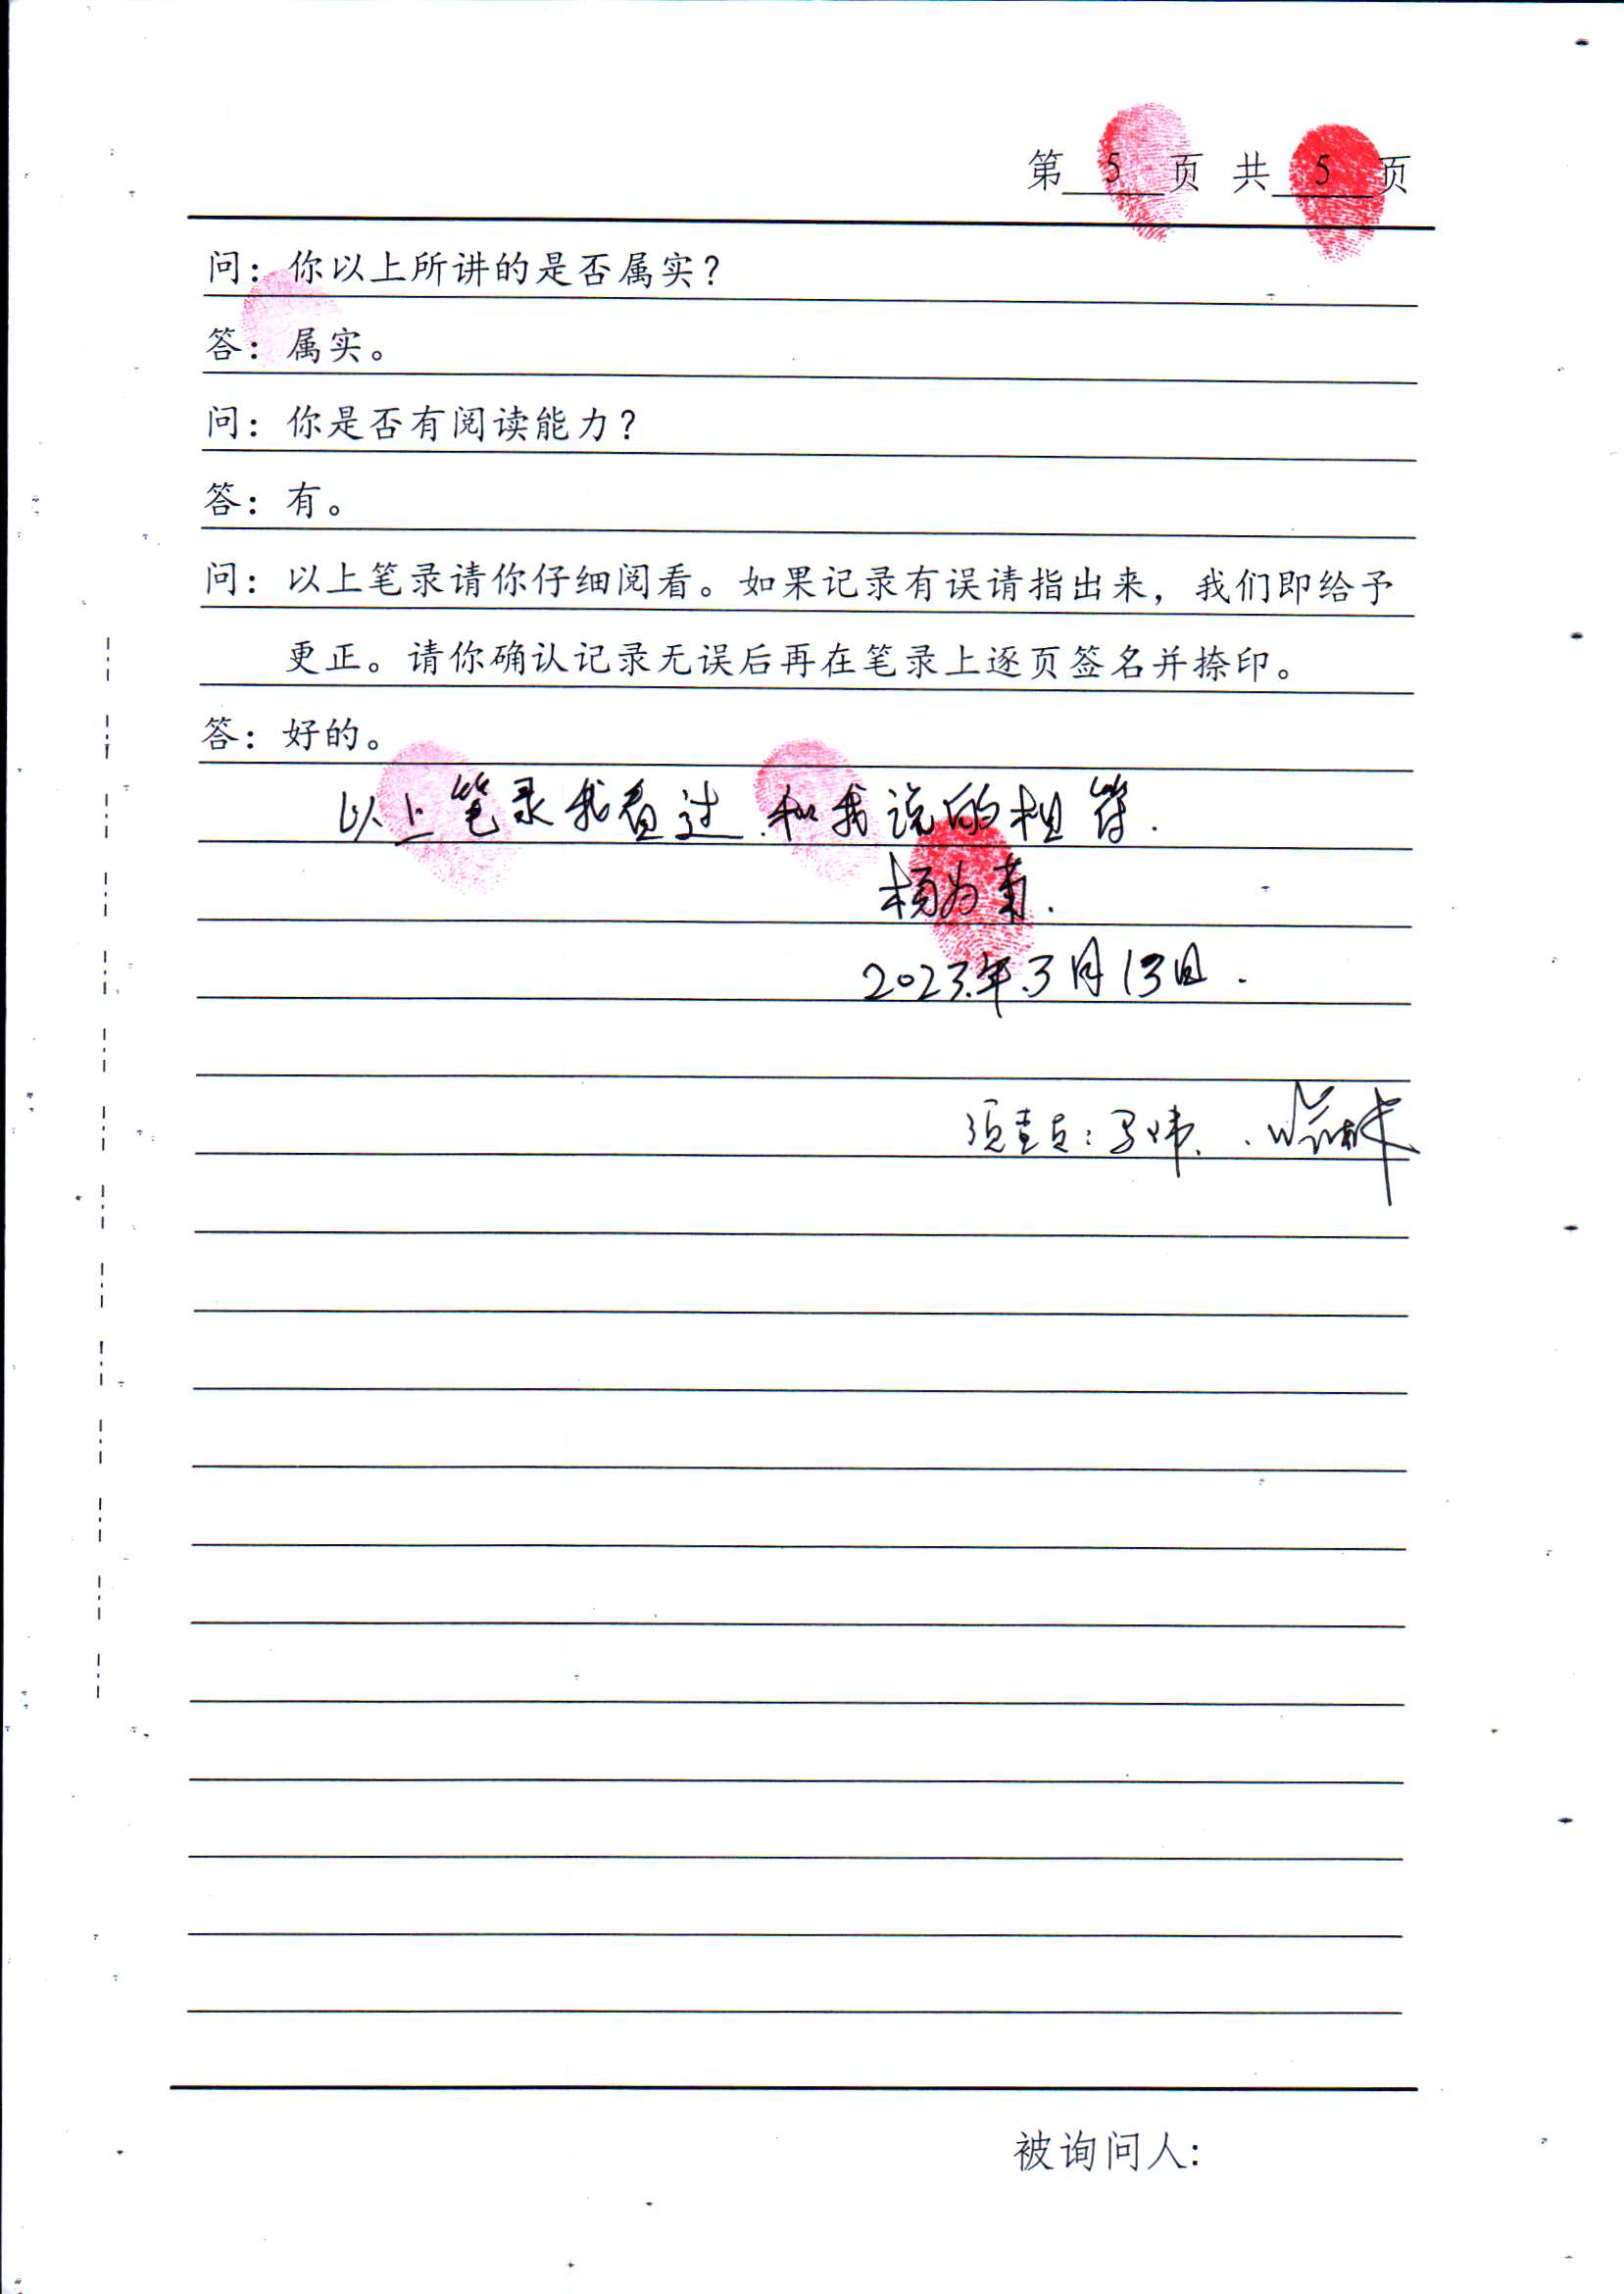 第 5 页 共 5 页
问：你以上所讲的是否属实？
答：属实。
问：你是否有阅读能力？
答：有。
问：以上笔录请你仔细阅看。如果记录有误请指出来，我们即给予
更正。请你确认记录无误后再在笔录上逐页签名并捺印。
答：好的。
以上笔录我看过.和我说的相符.
杨为菊.
2023年3月13日.
被询问人：